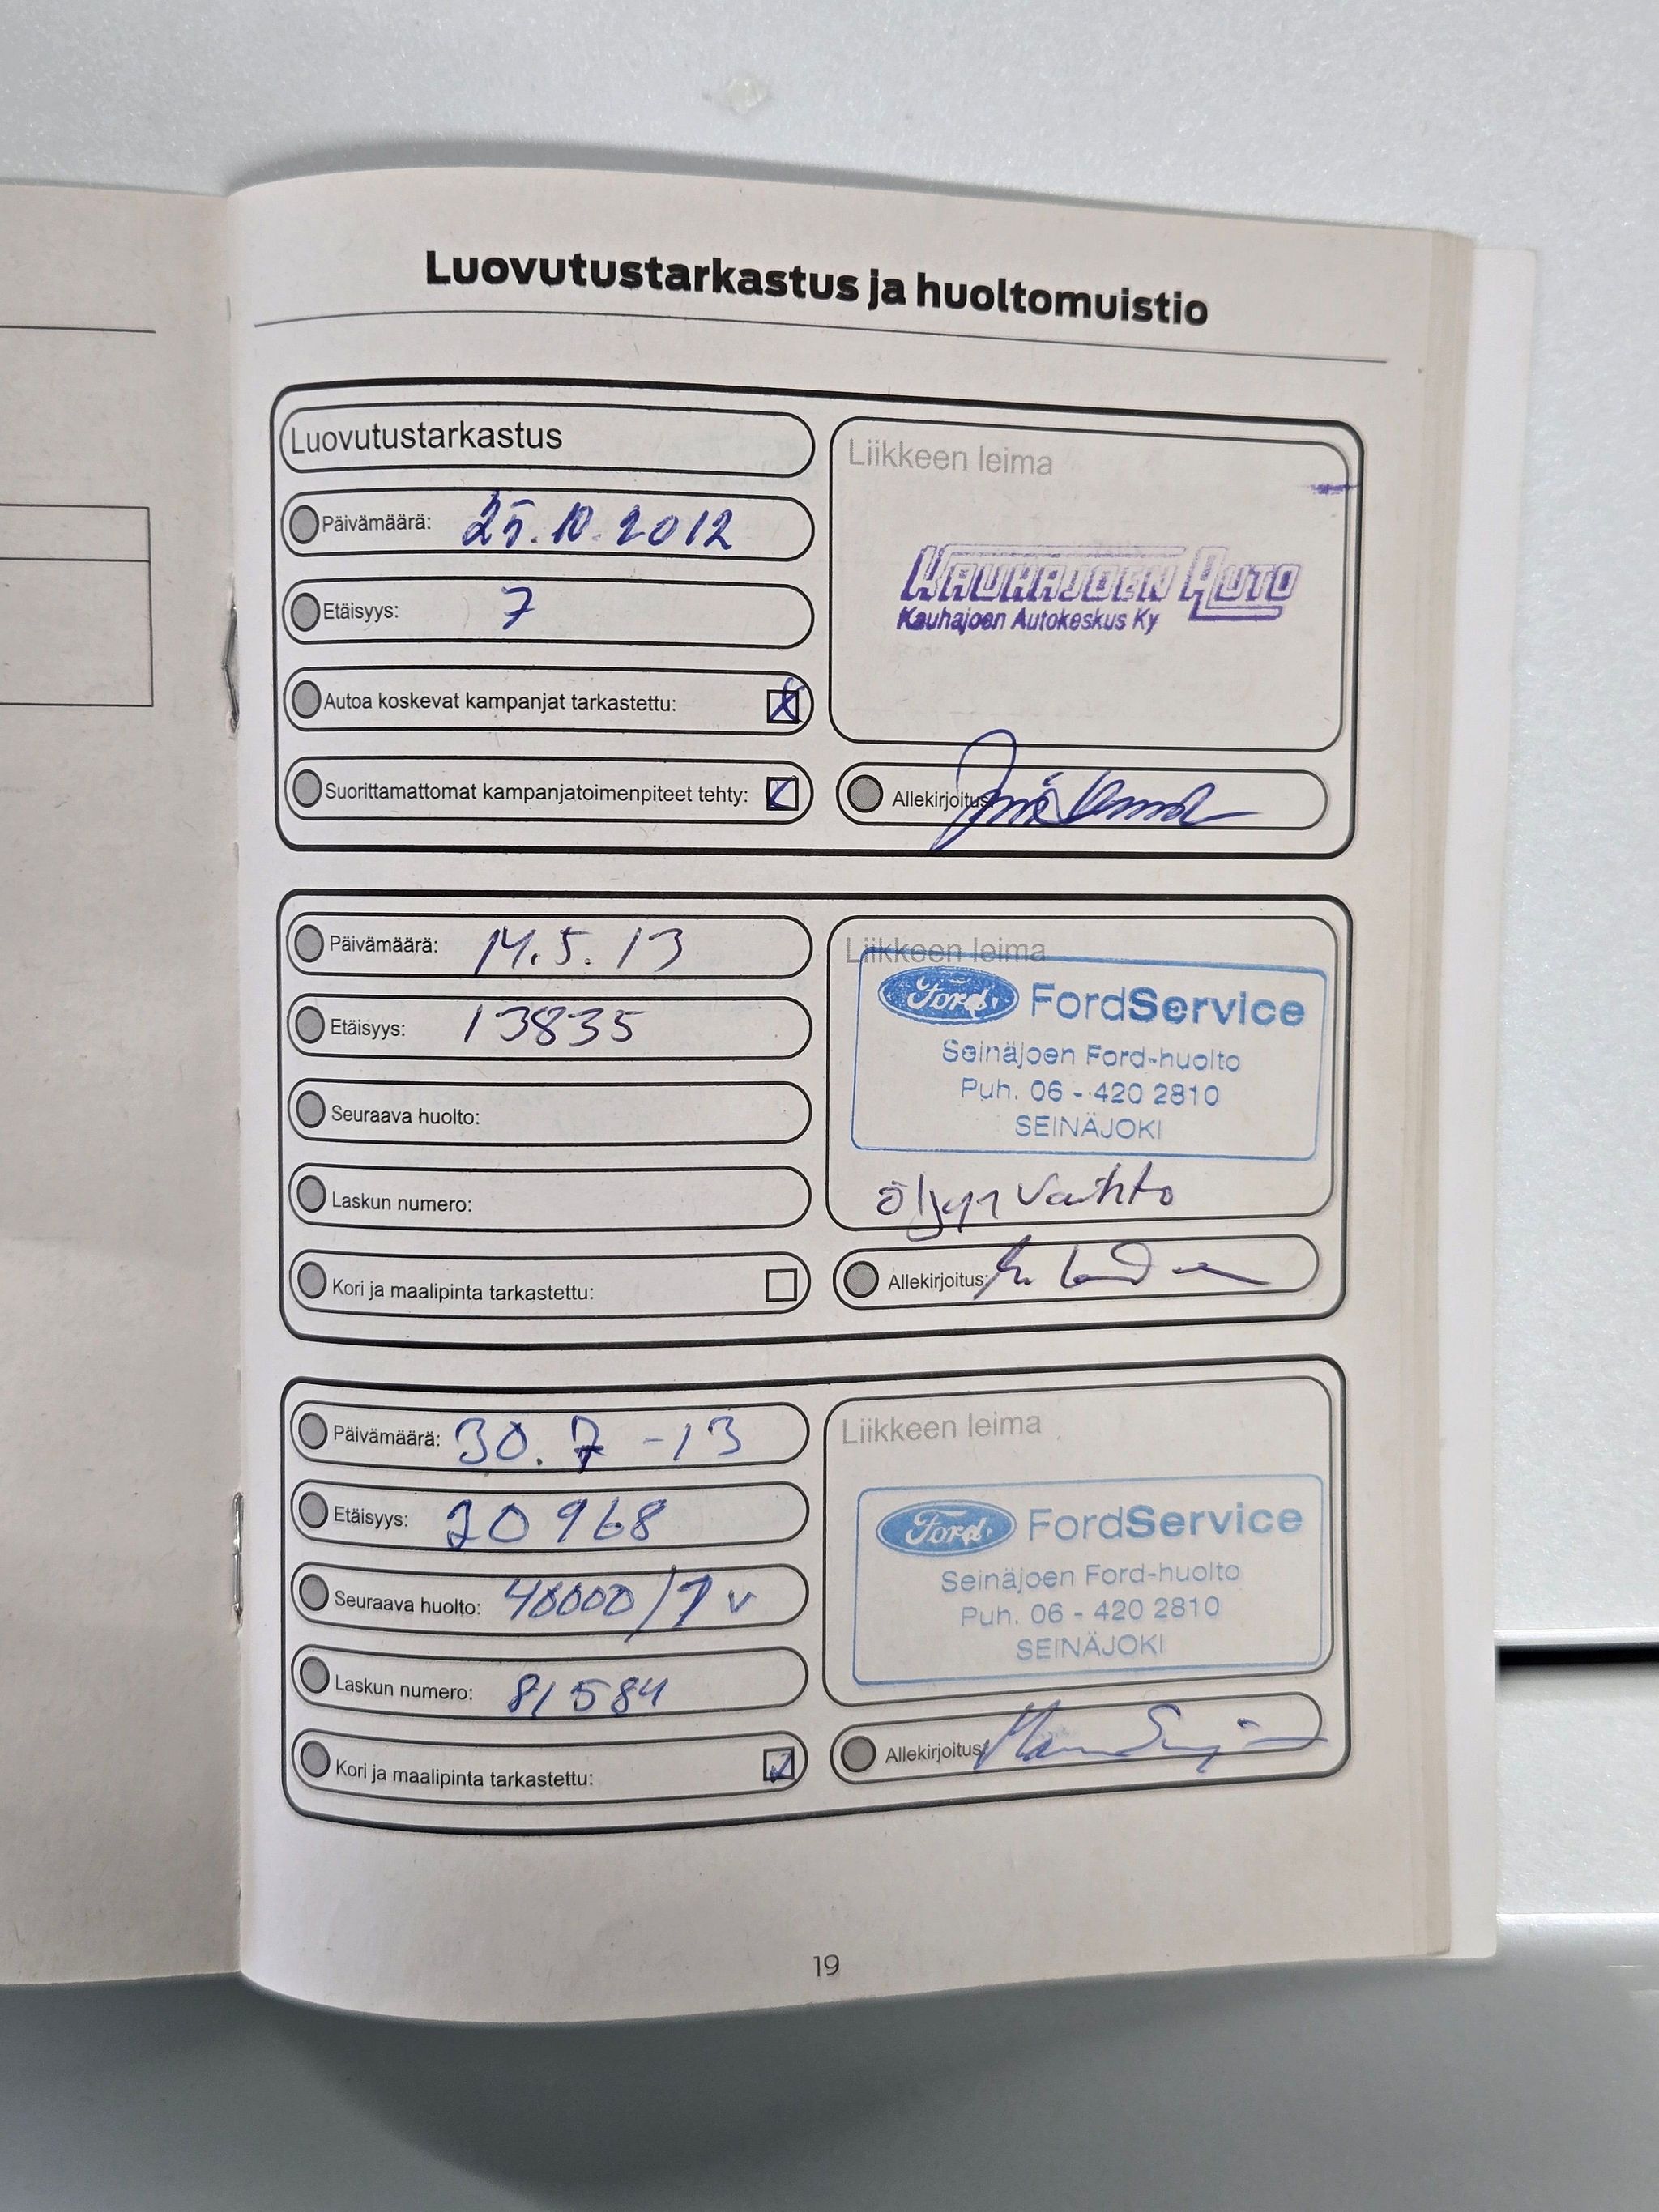 Luovutustarkastus ja huoltomuistio
Luovutustarkastus
Liikkeen leima
Päivämäärä: 25.10.2012
KAUHAJOEN AUTO
Kauhajoen Autokeskus Ky
Etäisyys: 7
Autoa koskevat kampanjat tarkastettu:
Suorittamattomat kampanjatoimenpiteet tehty:
Allekirjoitus:
Päivämäärä: 14.5.13
Liikkeen leima
Ford FordService
Etäisyys: 13835
Seinäjoen Ford-huolto
Puh. 06 - 420 2810
SEINÄJOKI
Seuraava huolto:
Laskun numero:
öljyn vaihto
Kori ja maalipinta tarkastettu:
Allekirjoitus:
Päivämäärä: 30.7 -13
Liikkeen leima
Etäisyys: 20968
Ford FordService
Seinäjoen Ford-huolto
Puh. 06 - 420 2810
SEINÄJOKI
Seuraava huolto: 40000/1 v
Laskun numero: 81584
Kori ja maalipinta tarkastettu:
Allekirjoitus:
19